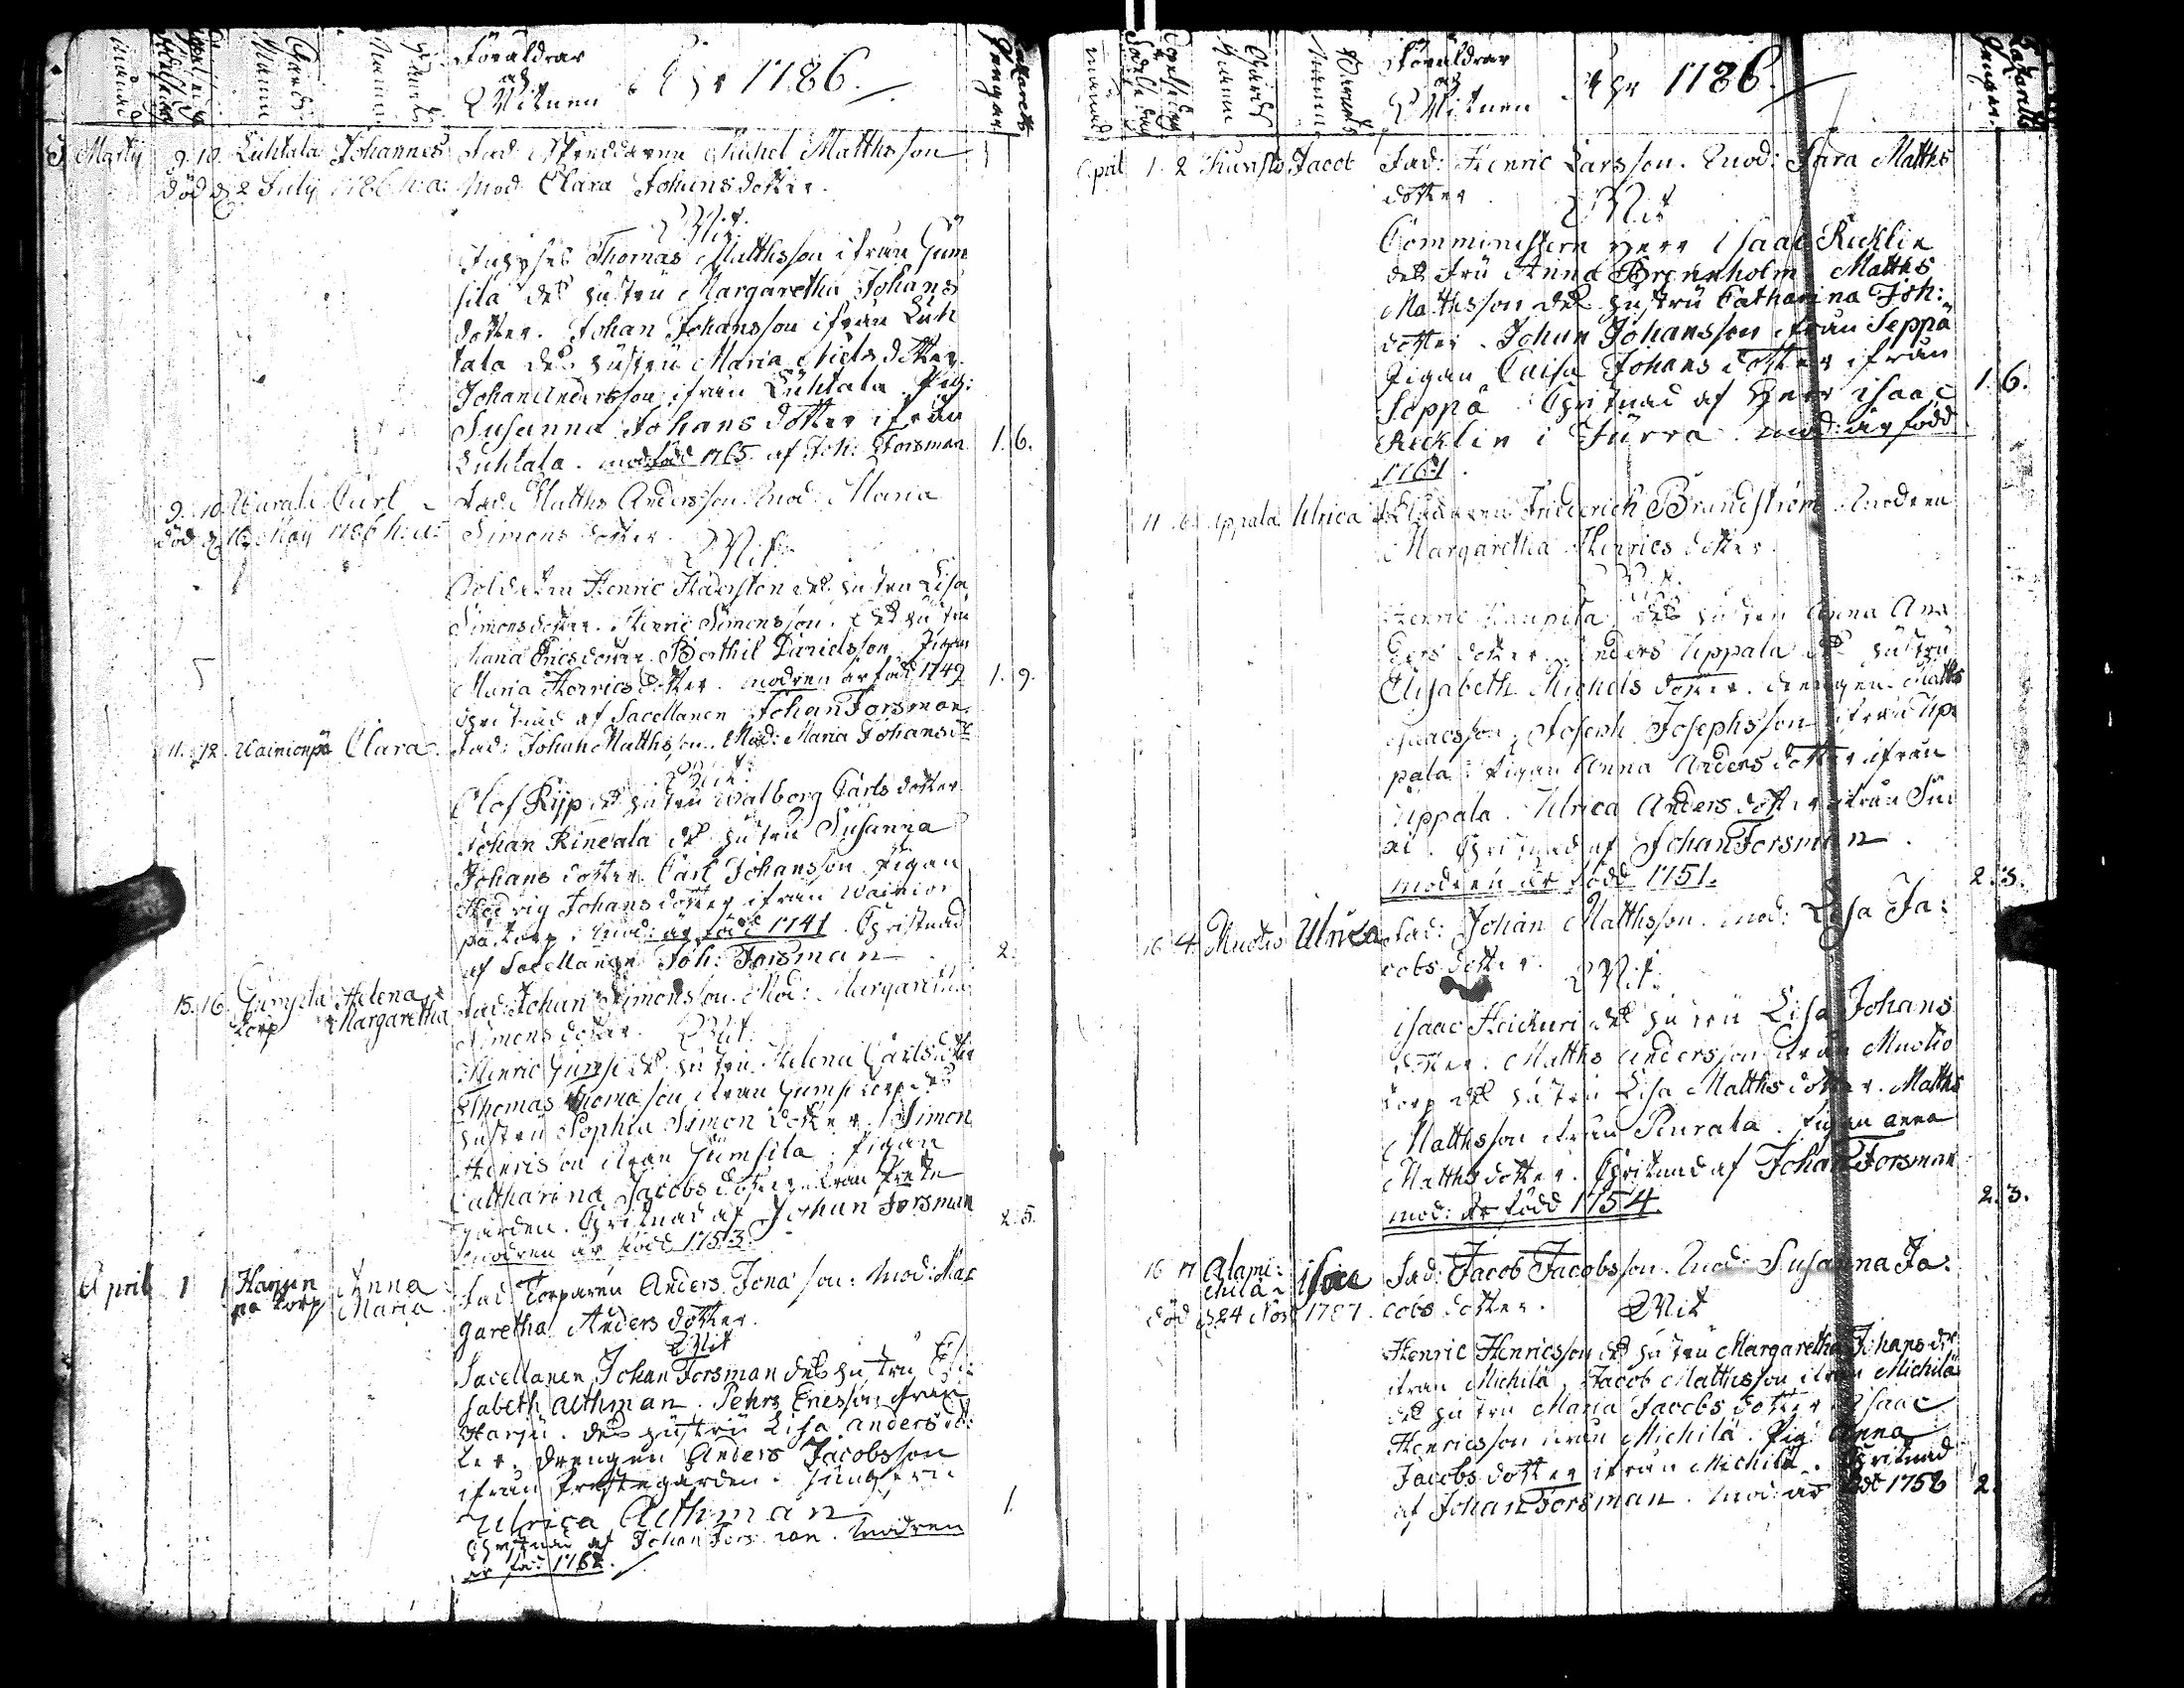 Föräldrar
och
Witnen År 1786.
Martij 9. 10. Luhtala Johannes Fad: Michel Matthsson
död d 2 Julij 1786 h: a: Mod Clara Johansdotter.
Wit:
Thomas Matthsson ifrån Gum
sila des hustru Margaretha Johans
dotter. Johan Johansson ifrån Luh
tala des hustru Maria Nielsdotter
Johan Andersson ifrån Luhtala. Pig:
Susanna Johansdotter ifrån
Luhtala. mod: född 1765. af Joh: Forsman 1. 6.
9. 10. Carl Fad: Matths Andersson. Mod: Maria
död d 16 Maij 1786 h: a: Simonsdotter
Wit:
Soldaten Henric des hustru Lisa
Simonsdotter. Henric Simonsson. des hustru
Maria Ericsdotter. Berthil Danielsson. Pigan
Maria Henricsdotter. modren är född 1749 1. 9.
Christnad af Sacellanen Johan Forsman.
11. 12. Wainionpä Clara. Fad: Johan Matthsson. Mod: Maria Johansdr
Wit:
Olof Ryp des hustru Walborg Carlsdotter
Johan Rineala des hustru Susanna
Johansdotter. Carl Johansson. Pigan
Hedvig Johansdotter ifrån Wainion
pä torp. Mod: är född 1741. Christnad
af Sacellanen Joh: Forsman 2.
15. 16. Helena Fad: Johan Simonsson. Mod: Margaretha
torp Margaretha Simonsdotter. Wit:
Henric Gumsi des hustru Helena Carlsdotter
Thomas Thomasson ifrån Gumsi torp des
hustru Sophia Simonsdotter. Simon
Henrisson ifrån Gumsila. Pigan
Catharina Jacobsdotter ifrån Preste
gården. Christnad af Johan Forsman 2. 5.
modren är född 1753.
April 1 1 Harjun Anna Fad Torparen Anders Jonasson: Mod: Mar
pä torp Maria garetha Andersdotter.
Wit
Sacellanen Johan Forsman des hustru Eli
sabeth Aethman. Pehr Ericsson ifrån
Harju. des hustru Lisa Andersdot
ter. Drengen Anders Jacobsson
ifrån Prestegården. Jungfrun
Ulrica Aethman 1.
Christnad af Johan Forsman. Modren
är född 1762.
Föräldrar
och
Witnen År 1786.
April 1. 2 Jacob Fad: Henric Larsson. Mod: Sara Matths
dotter. Wit
Comministern Herr Isaac Recklin
des Fru Anna Brennholm. Matths
Matthsson des hustru Catharina Joh:
dotter. Johan Johansson ifrån Seppä
Pigan Caisa Johansdotter ifrån
Seppä. Christnad af Herr Isaac 1. 6.
Recklin i Jurva. mod: är född
1761.
Uppala Ulrica Friderich Brandström. Modren
Margaretha Henricsdotter.
Wit.
Henric Kaupila des hustru Anna An
dersdotter. Anders Uppala des hustru
Elisabeth Michelsdotter. drengen Matths
Isaacsson. Joseph Josephsson ifrån Up
pala. Pigan Anna Andersdotter ifrån
Uppala. Ulrica Andersdotter ifrån
Christnad af Johan Forsman.
modren är född 1751. 2. 3.
16 Ulrica Fad: Johan Matthsson. Mod: Lisa Ja:
cobsdotter. Wit:
Isaac des hustru Lisa Johans
dotter. Matths Andersson ifrån Muotio
torp des hustru Lisa Matthsdotter. Matths
Matthsson ifrån Peurala. Pigan Anna
Matthsdotter. Christnad af Johan Forsman
mod: är född 1754. 2. 3.
16 17 Alami:
chilä Isaac Fad: Jacob Jacobsson. Mod: Susanna Ja:
död d 24 Nov 1787. cobsdotter. Wit
Henric Henricsson des hustru Margaretha Johansdr
ifrån Michilä. Jacob Matthsson ifrån Michilä
des hustru Maria Jacobsdotter. Isaac
Henricsson ifrån Michilä. Pig: Anna
Jacobsdotter ifrån Michilä. Christnad
af Johan Forsman. Mod: är född 1758 2.